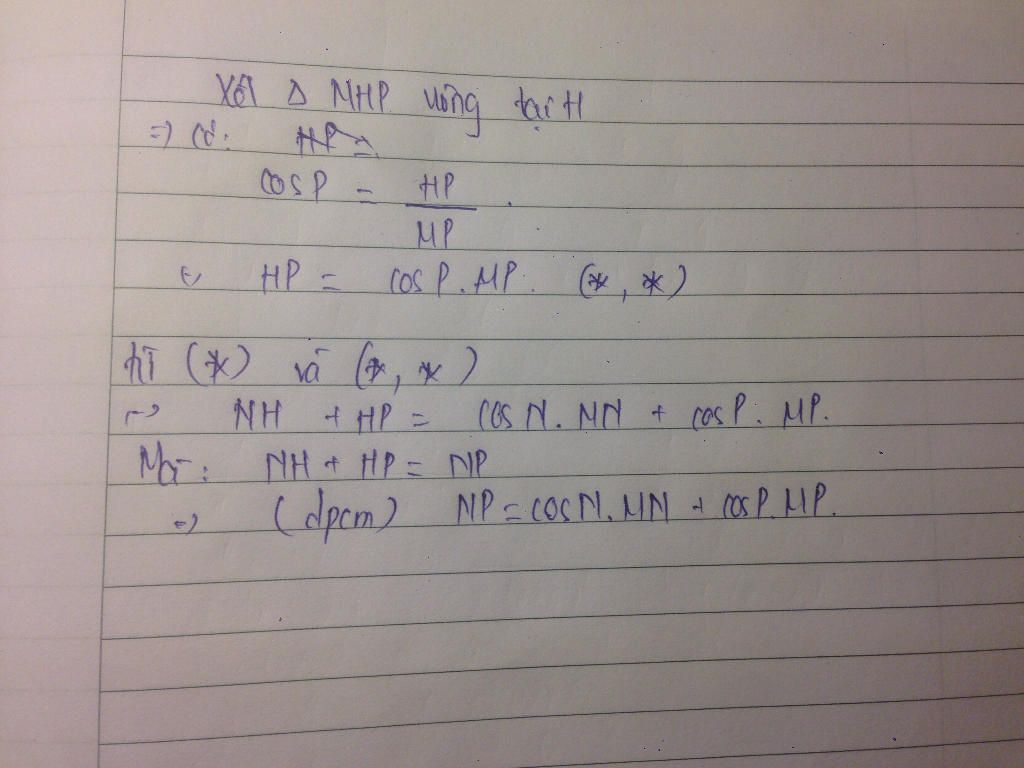 Xét Δ MHP vuông tại H
=> Có: HP =
cos P = HP / MP .
<=> HP = cos P . MP. (*, *)
từ (*) và (*, *)
=> NH + HP = cos N . MN + cos P . MP.
Mà: NH + HP = NP
=> (đpcm) NP = cos N . MN + cos P . MP.